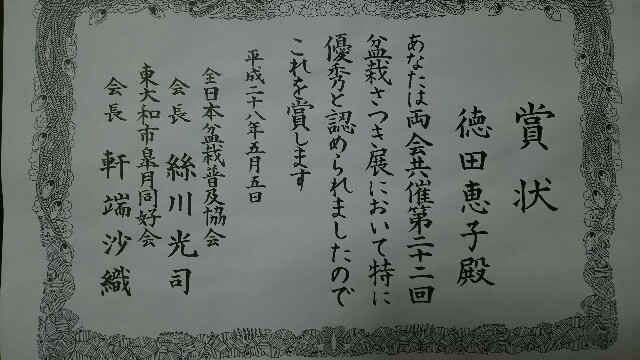 賞状
徳田恵子殿
あなたは両会共催第二十二回
盆栽さつき展において特に
優秀と認められましたので
これを賞します
平成二十八年五月五日
全日本盆栽普及協会
会長 絲川光司
東大和市皐月同好会
会長 軒端沙織